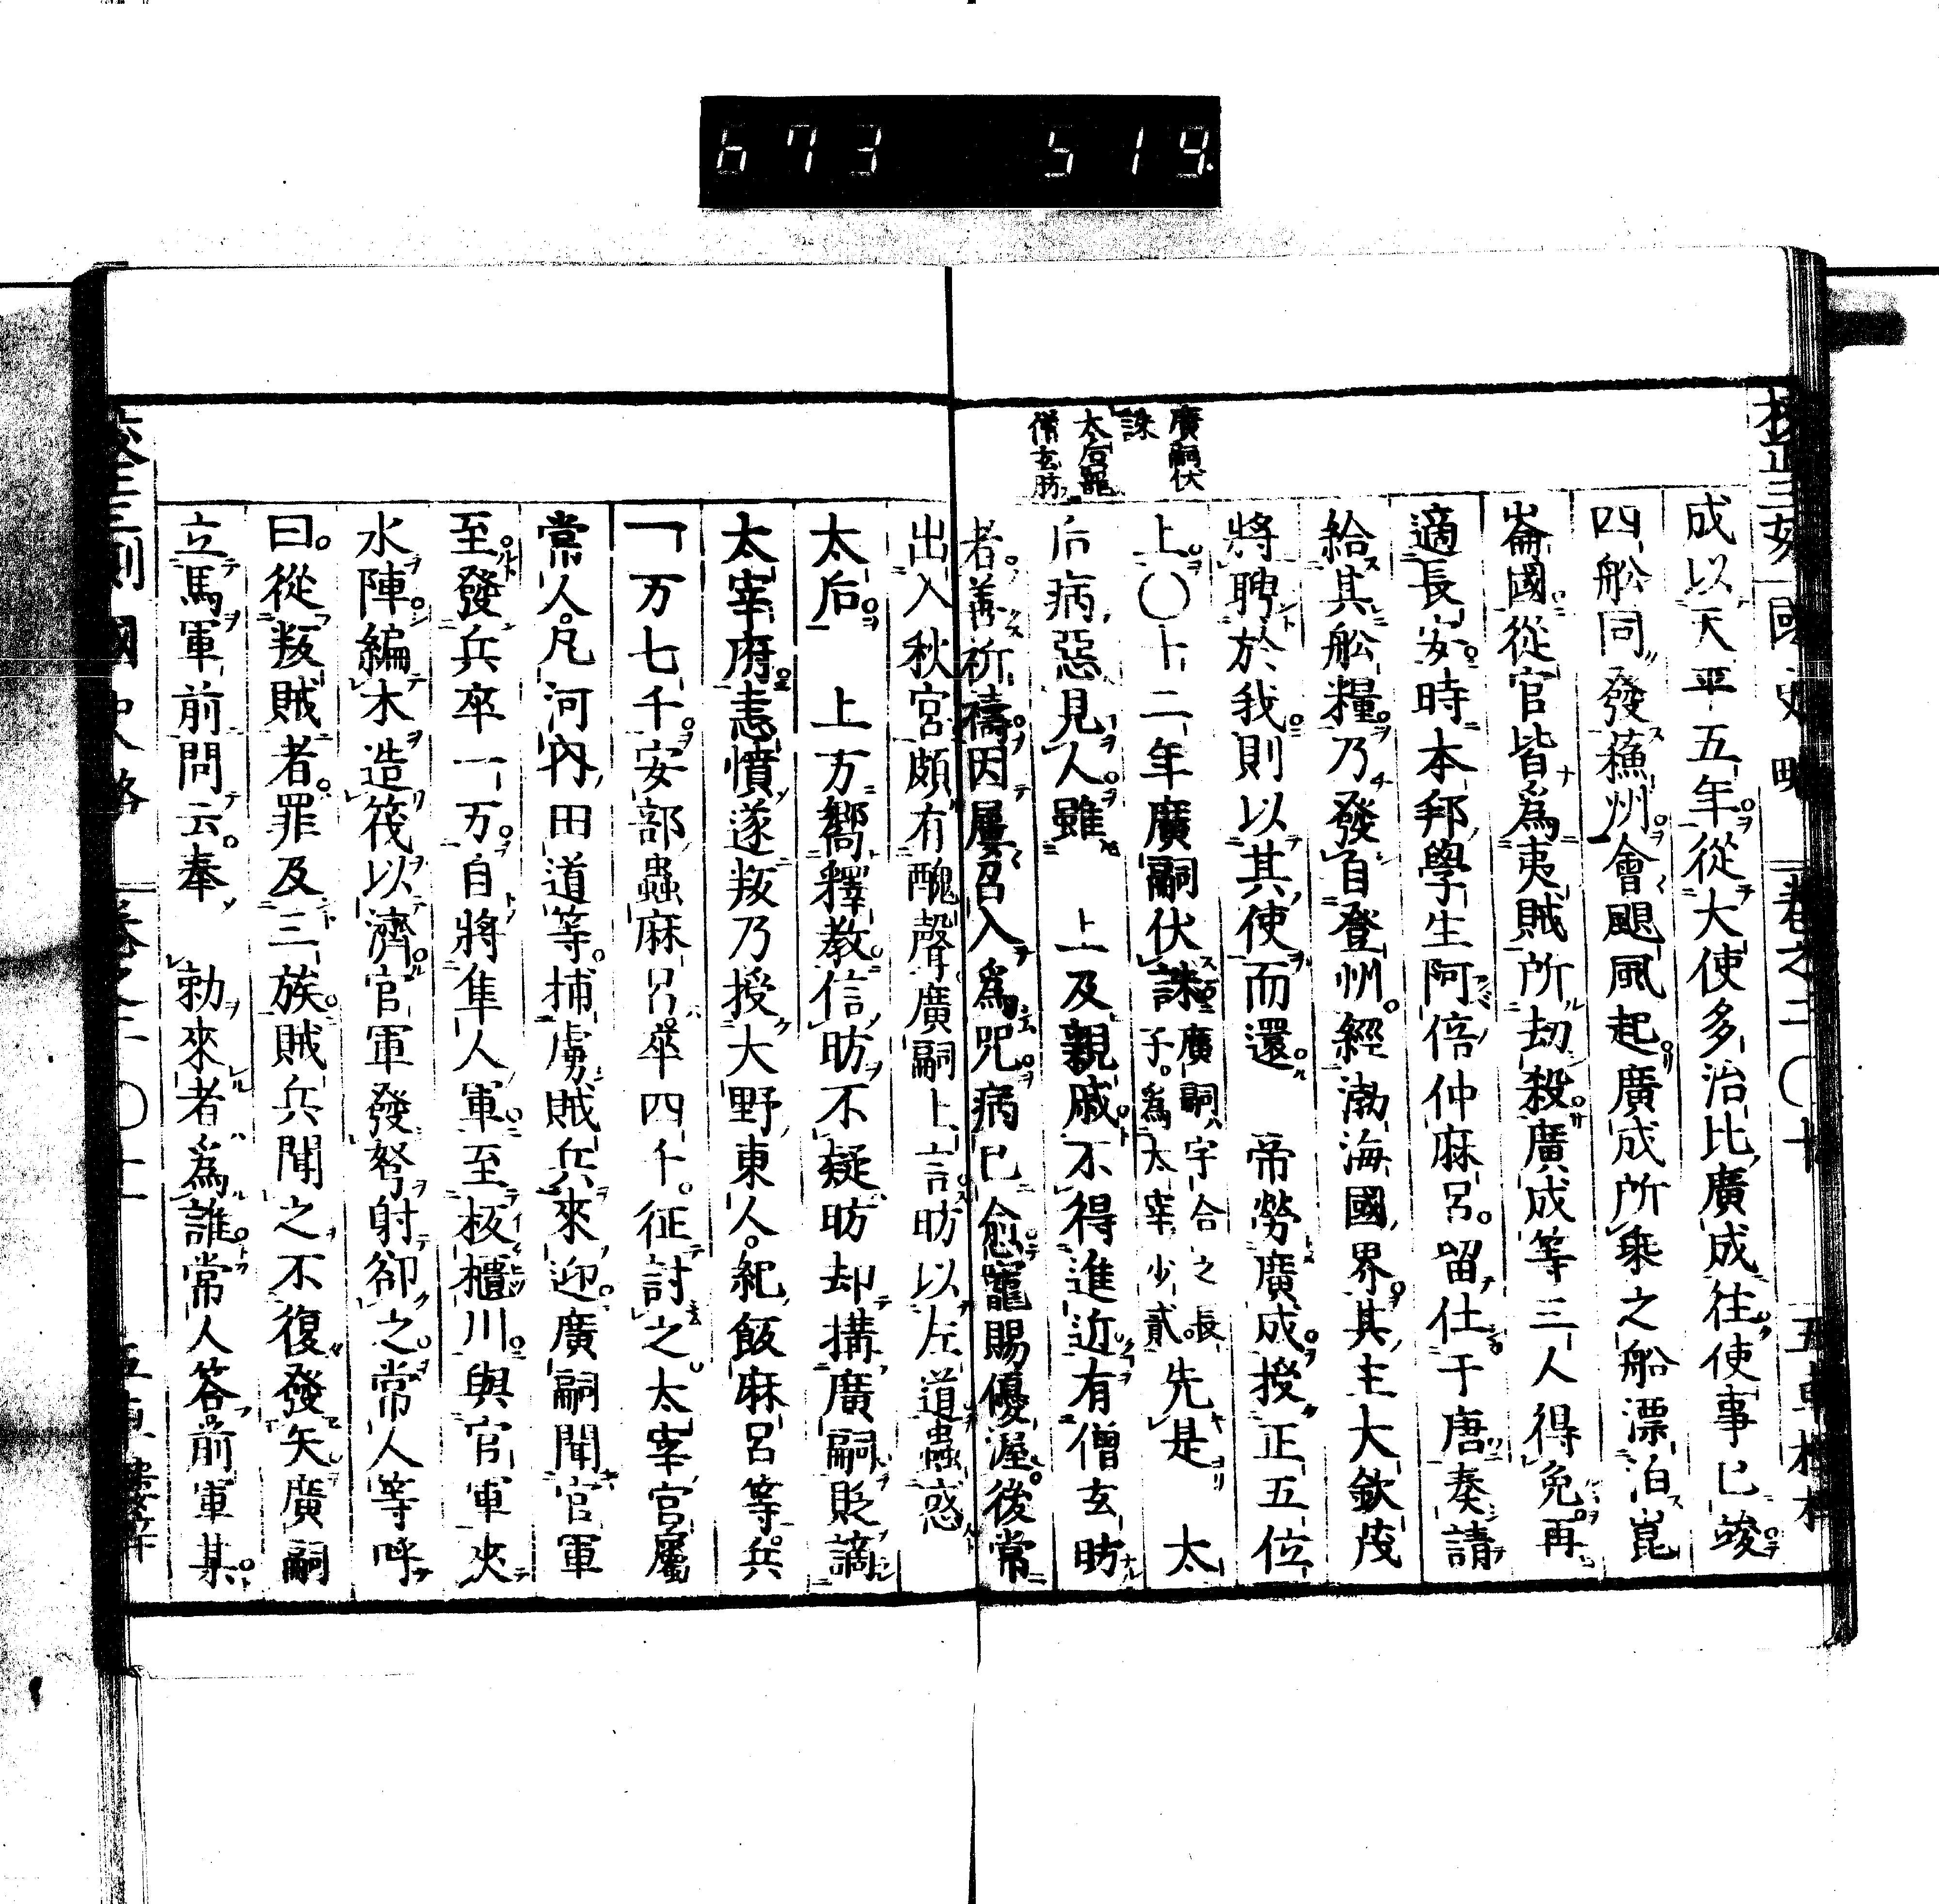 673 519.
成以天平五年從大使多治比廣成往使事已竣
四舩同發蘓州會颶風起廣成所乗之船漂泊崑
崙國從官皆爲夷賊所劫殺廣成等三人得免再
適長安時本邦學生阿倍仲麻呂留仕于唐奏請
給其舩糧乃發自登州經渤海國界其主大欽茂
將聘於我則以其使而還　帝勞廣成授正五位
廣嗣伏
誅
上〇十二年廣嗣伏誅廣嗣宇合之長子爲太宰少貳先是　太
太后寵
僧玄昉
后病惡見人雖　上及親戚不得進近有僧玄昉
者善祈禱因屢召入爲咒病已愈寵賜優渥後常
出入秋宮頗有醜聲廣嗣上言昉以左道蠱惑
太后　上方嚮釋教信昉不疑昉却搆廣嗣貶謫
太宰府恚憤遂叛乃授大野東人紀飯麻呂等兵
一万七千安部蟲麻呂卒四千征討之太宰官屬
常人凡河內田道等捕虜賊兵來迎廣嗣聞官軍
至發兵卒一万自將隼人軍至板櫃川與官軍夾
水陣編木造筏以濟官軍發弩射卻之常人等呼
曰從叛賊者罪及三族賊兵聞之不復發矢廣嗣
立馬軍前問云奉　勅來者爲誰常人答前軍某